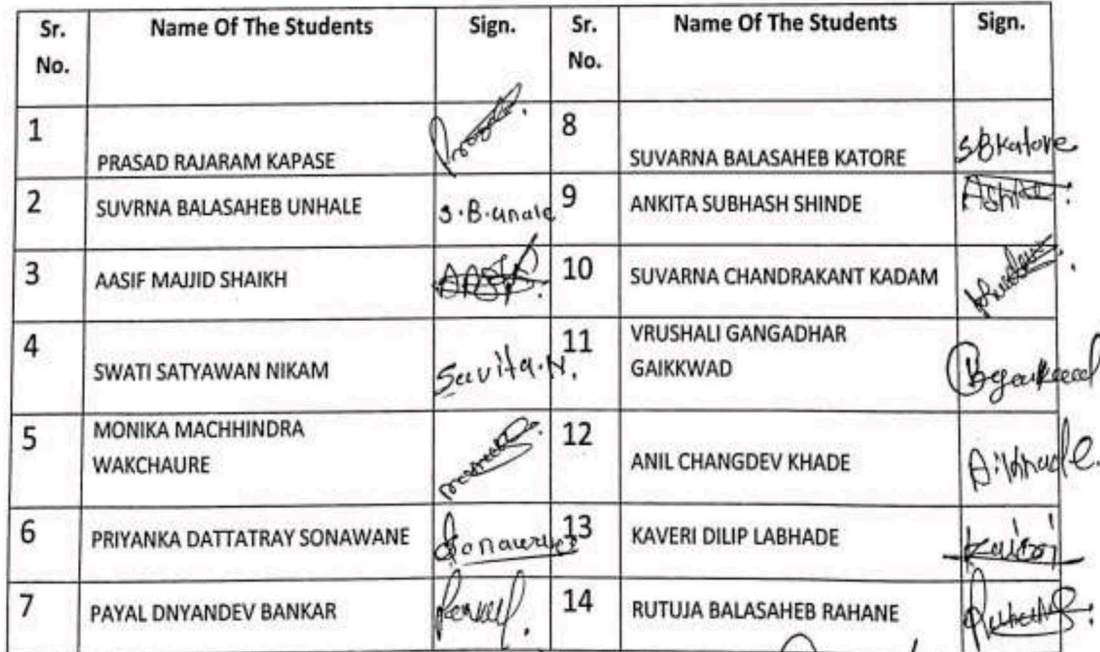 Sr. No. Name Of The Students Sign. Sr. No. Name Of The Students Sign.
1 PRASAD RAJARAM KAPASE 8 SUVARNA BALASAHEB KATORE S B Katore
2 SUVRNA BALASAHEB UNHALE S.B.Unale 9 ANKITA SUBHASH SHINDE
3 AASIF MAJJID SHAIKH 10 SUVARNA CHANDRAKANT KADAM
4 SWATI SATYAWAN NIKAM Savita.N. 11 VRUSHALI GANGADHAR
GAIKKWAD
5 MONIKA MACHHINDRA
WAKCHAURE 12 ANIL CHANGDEV KHADE
6 PRIYANKA DATTATRAY SONAWANE 13 KAVERI DILIP LABHADE
7 PAYAL DNYANDEV BANKAR 14 RUTUJA BALASAHEB RAHANE